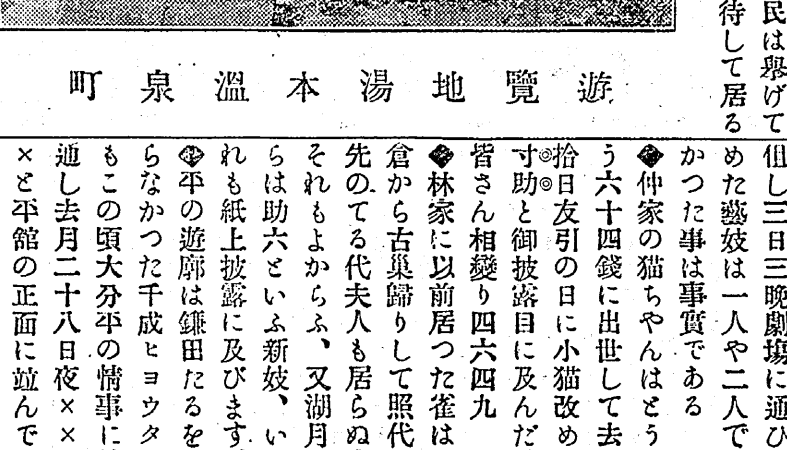 民は擧げて
待して居る
遊覽地湯本溫泉町
但し三日三晩劇塲に通ひ
めた藝妓は一人や二人で
かつた事は事實である
◆仲家の猫ちやんはとう
う六十四錢に出世して去
拾日友引の日に小猫改め
寸助と御披露目に及んだ
皆さん相變り四六四九
◆林家に以前居つた雀は
倉から古巣歸りして照代
先のてる代夫人も居らぬ
それもよからふ、又湖月
らは助六といふ新妓、い
れも紙上披露に及びます
◆平の遊廓は鎌田たるを
らなかつた千成ヒヨウタ
もこの頃大分平の情事に
通し去月二十八日夜××
×と平舘の正面に竝んで